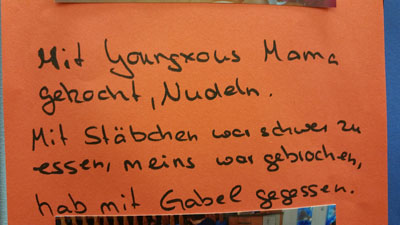 Mit Youngxous Mama
gekocht, Nudeln.
Mit Stäbchen war schwer zu
essen, meins war gebrochen,
hab mit Gabel gegessen.